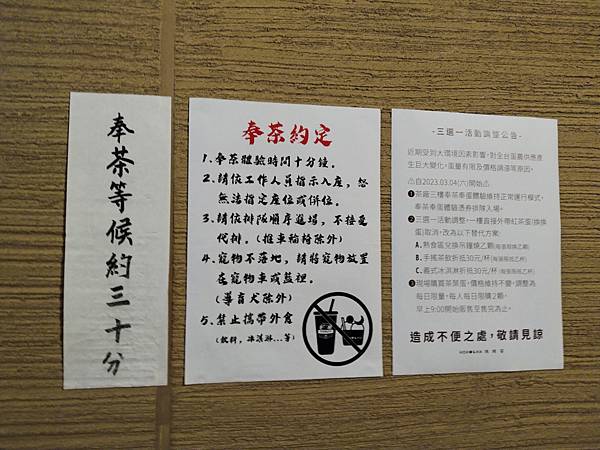 奉茶等候約三十分
奉茶約定
1、奉茶體驗時間十分鐘。
2、請依工作人員指示入座，恕
無法指定座位或併位。
3、請依排隊順序進場，不接受
代排。(推車輪椅除外)
4、寵物不落地，請將寵物放置
在寵物車或籃裡。
(導盲犬除外)
5、禁止攜帶外食
(飲料，冰淇淋...等)
-三選一活動調整公告-
近期受到大環境因素影響，對全台蛋農供應產
生巨大變化，蛋量有限及價格調漲等原因。
⚠自2023.03.04(六)開始⚠
❶茶廠三樓奉茶奉蛋體驗維持正常運行模式，
奉茶奉蛋體驗憑券排隊入場。
❷三選一活動調整，一樓直接外帶紅茶蛋(換換
蛋)取消，改為以下替代方案:
A.熱食區兌換吊鐘燒乙顆
B.手搖茶飲折抵30元/杯(每張限抵乙杯)
C.義式冰淇淋折抵30元/杯(每張限抵乙杯)
❸現場購買茶葉蛋，價格維持不變，調整為
每日限量，每人每日限購2顆，
早上9:00開始販售至售完為止。
造成不便之處，敬請見諒